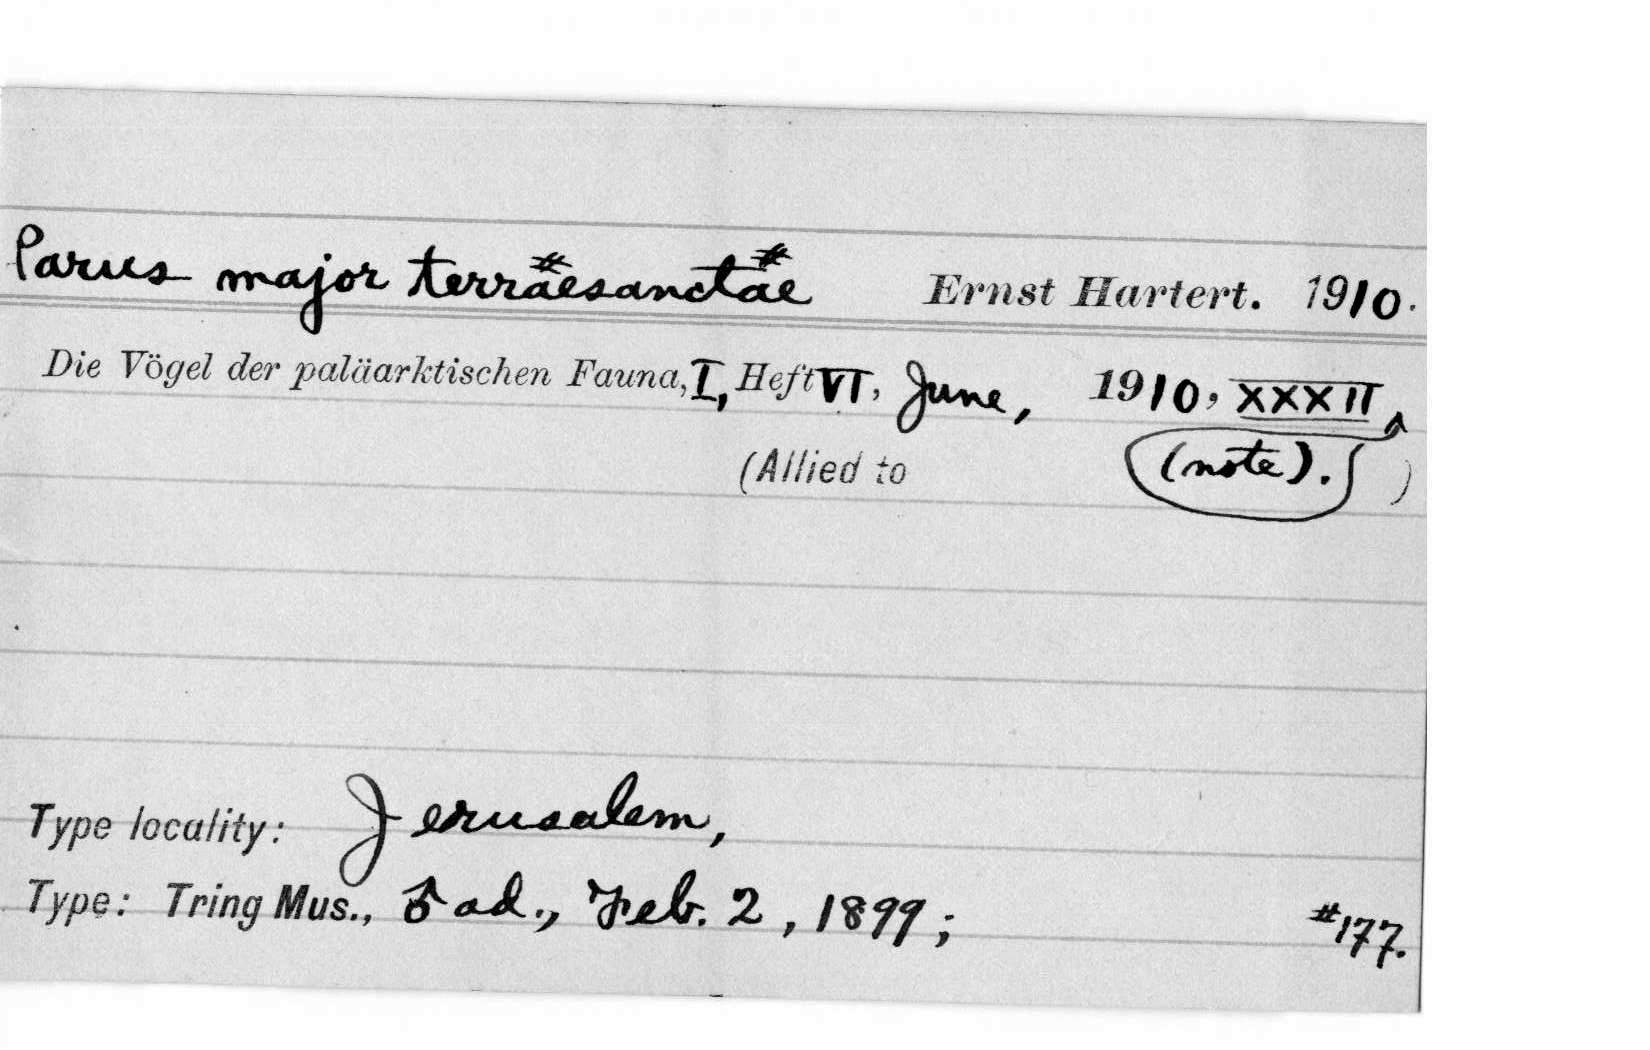 Parus major terraesanctae Ernst Hartert. 1910.
Die Vögel der paläarktischen Fauna, I, Heft VI, June, 1910, XXXII
(Allied to (note). )
Type locality: Jerusalem,
Type: Tring Mus., ♂ ad., Feb. 2, 1899; #177.